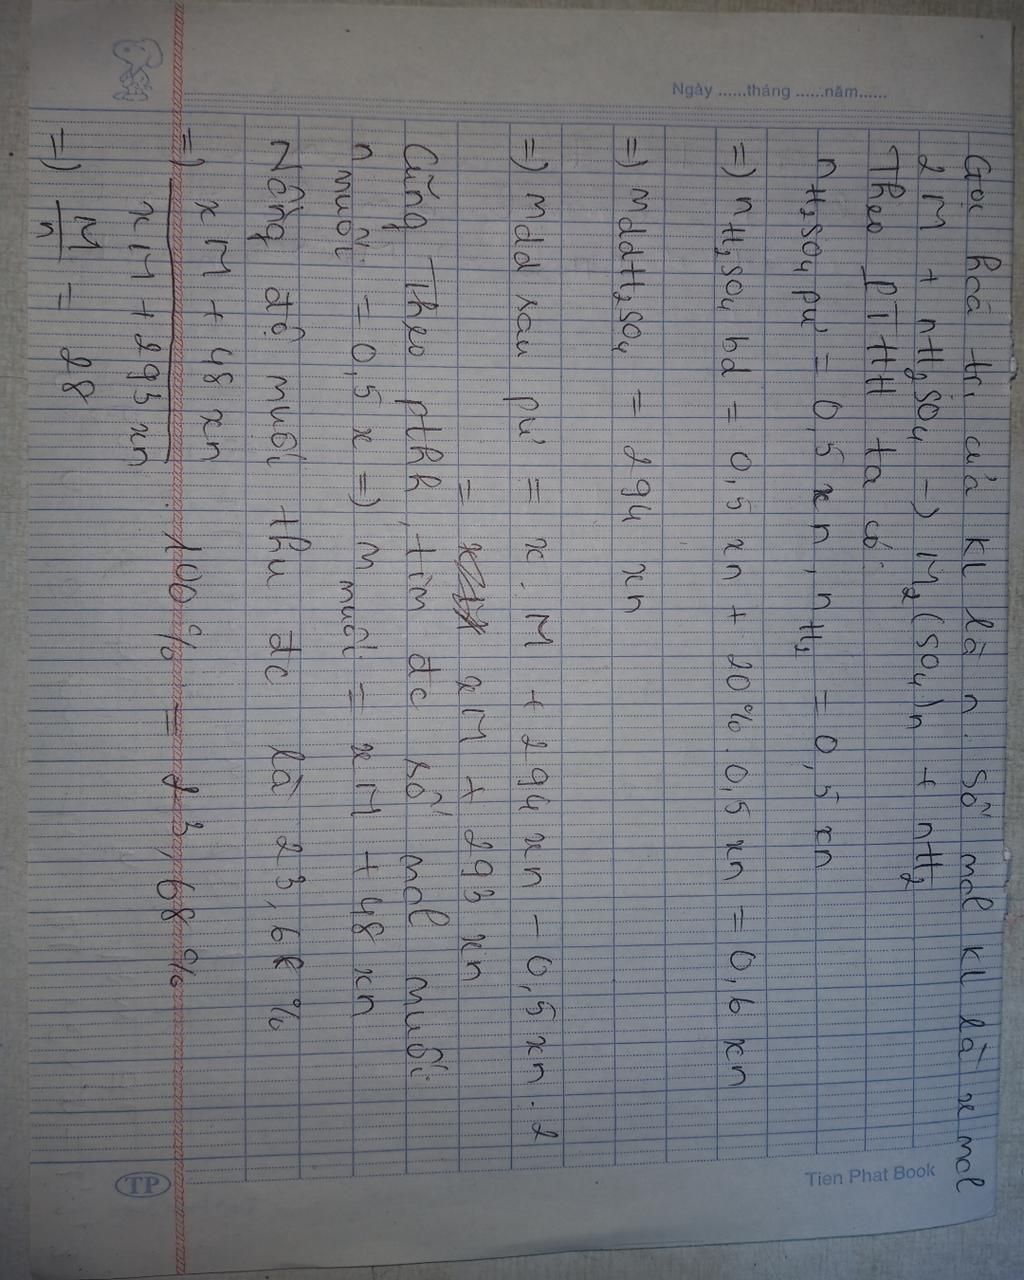 Ngày ......tháng ......năm......
Gọi hoá trị của kl là n. Số mol kl là x mol
2M + nH₂SO₄ -> M₂(SO₄)n + nH₂
Theo PTHH ta có
nH₂SO₄ pư = 0,5 xn, nH₂ = 0,5 xn
=> nH₂SO₄ bd = 0,5 xn + 20%. 0,5 xn = 0,6 xn
=> mddH₂SO₄ = 294 xn
=> mdd sau pư = x. M + 294 xn - 0,5 xn . 2
= xM + 293 xn
Cũng Theo pthh, tìm đc số mol muối
n muối = 0,5 x => m muối = xM + 48 xn
Nồng độ muối thu đc là 23,68 %
=> xM + 48 xn / xM + 293 xn . 100% = 23,68 %
=> M/n = 28
Tien Phat Book
TP